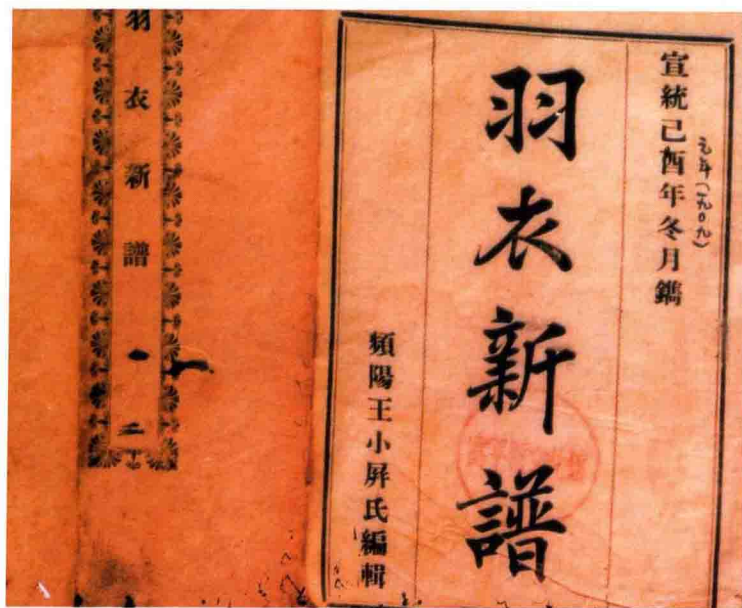 宣統己酉年冬月鐫
元年(一九〇九)
羽衣新譜
頻陽王小屏氏編輯
羽衣新譜
二